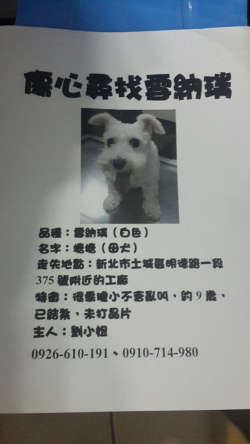 傷心尋找雪納瑞
品種：雪納瑞（白色）
名字：嬑嬑（母犬）
走失地點：新北市土城區明德路一段
375號附近的工廠
特徵：很乖膽小不會亂叫，約9歲，
已結紮，未打晶片
主人：劉小姐
0926-610-191、0910-714-980